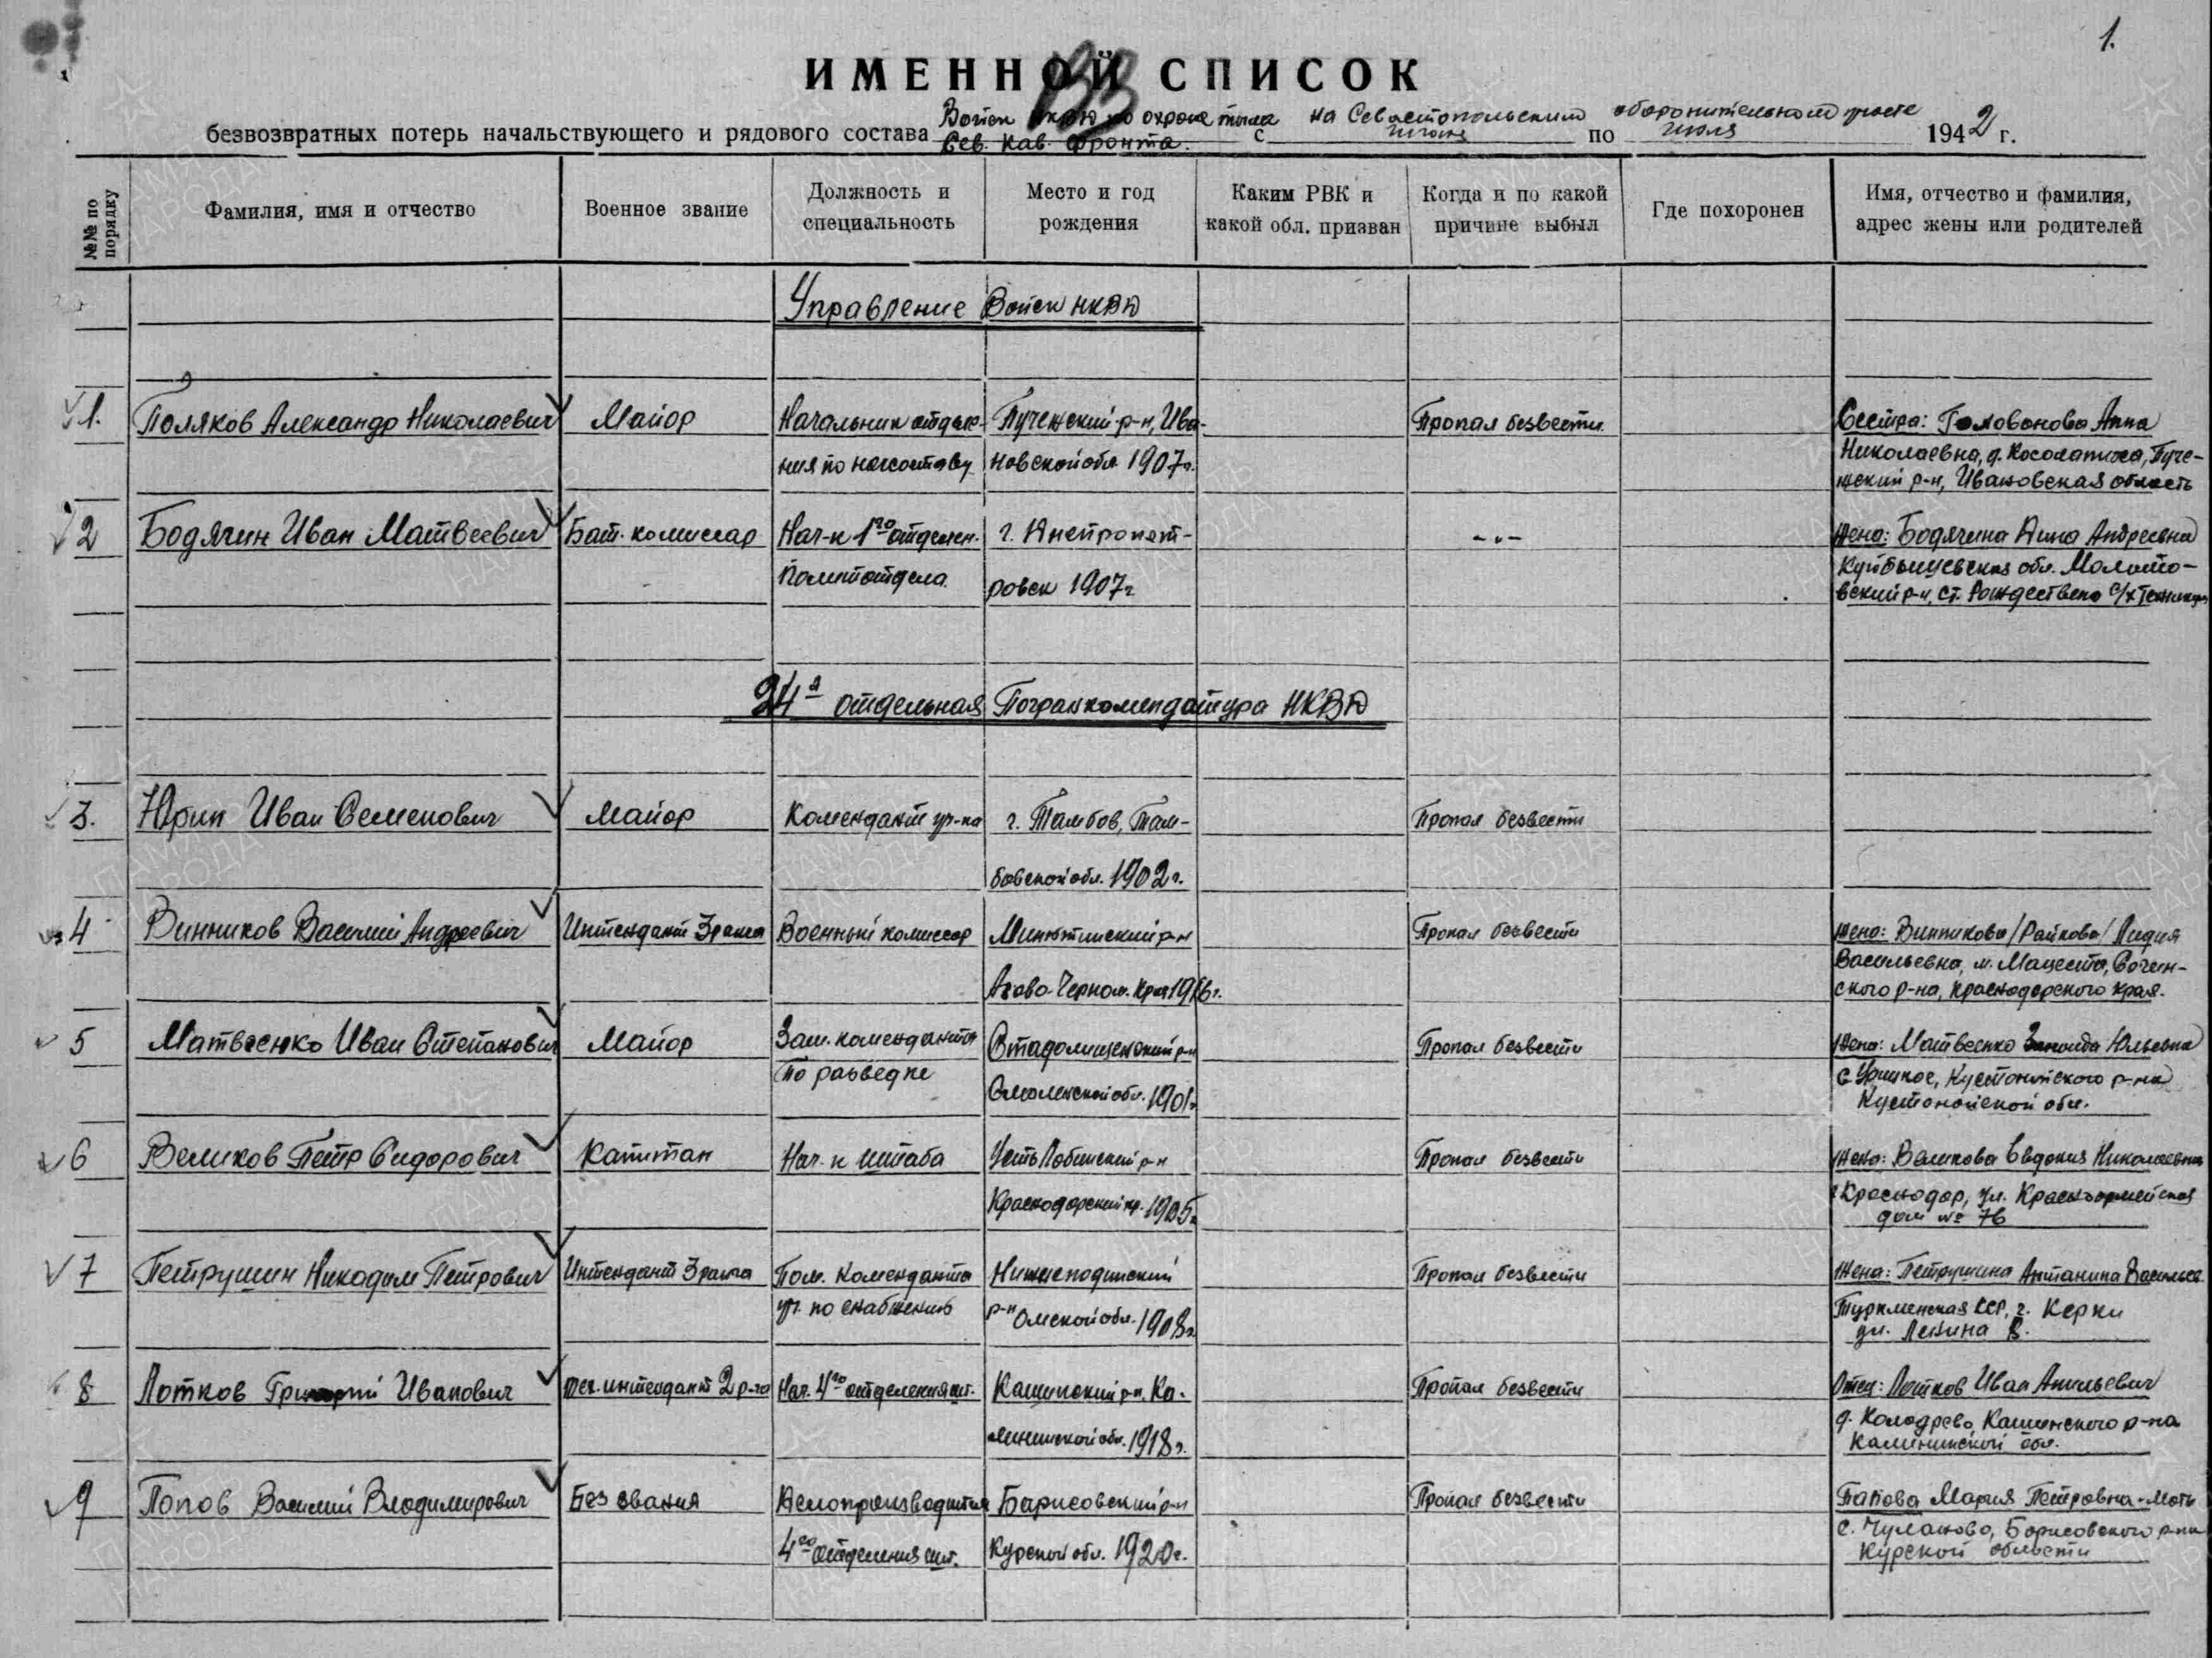 1.
ИМЕННОЙ СПИСОК
133
безвозвратных потерь начальствующего и рядового состава Войск НКВД по охране тыла на Севастопольским оборонительном
Сев. Кав. Фронта. с июня по июля 1942 г.
№№ по порядку
Фамилия, имя и отчество
Военное звание
Должность и специальность
Место и год рождения
Каким РВК и какой обл. призван
Когда и по какой причине выбыл
Где похоронен
Имя, отчество и фамилия, адрес жены или родителей
Управление Войск НКВД
1. Поляков Александр Николаевич Майор Начальник отделе- Пучежский р-н, Ива- Пропал безвести Сестра: Голованова Анна
ния по начсоставу новской обл 1907г. Николаевна, д. Косолапиха, Пуче-
жский р-н, Ивановская область
2 Бодягин Иван Матвеевич Бат. комиссар Нач-к 1го отделен. г. Днепропет- -"- Жена: Бодягина Анна Андреевна
Политотдела ровск 1907г Куйбышевская обл. Молото-
вский р-н, ст. Рождествено с/х Техникум
24я отдельная Погранкомендатура НКВД
3. Юрин Иван Семенович Майор Комендант уч-ка г. Тамбов, Там- Пропал безвести
бовской обл. 1902г.
4 Винников Василий Андреевич Интендант 3 ранга Военный комиссар р-н Пропал безвести Жена: Винникова /Райкова/ Лидия
Азово-Черном. Края Васильевна, м. Мацеста, Сочин-
ского р-на, Краснодарского края.
5 Матвеенко Иван Степанович Майор Зам. коменданта р-н Пропал безвести Жена: Матвеенко Юльевна
по разведке Смоленской обл. 1901г. с. Урицкое, Кустанайского р-на
Кустанайской обл.
6 Великов Петр Сидорович Капитан Нач-к штаба Усть Лабинский р-н Пропал безвести Жена: Великова Евдокия Николаевна
Краснодарский кр. 1905г. г. Краснодар, ул. Красноармейская
дом № 76
7 Петрушин Никодим Петрович Интендант 3 ранга Пом. Коменданта Пропал безвести Жена: Петрушина Антанина Васильев.
уч. по снабжению р-н Омской обл. 1908г. Туркменская ССР, г. Керки
ул. Ленина 8.
8 Лотков Григорий Иванович тех. интендант 2 р-га Нач. 4го отделения шт. Кашинский р-н. Ка- Пропал безвести Отец: Лотков Иван
лининской обл. 1918г. д. Колодрево Кашинского р-на
Калининской обл.
9 Попов Василий Владимирович Без звания Делопроизводитель Барисовский р-н Пропал безвести Папова Мария Петровна-Мать
4го отделения шт. Курской обл. 1920г. с. Чуланово, Борисовского р-на
Курской области